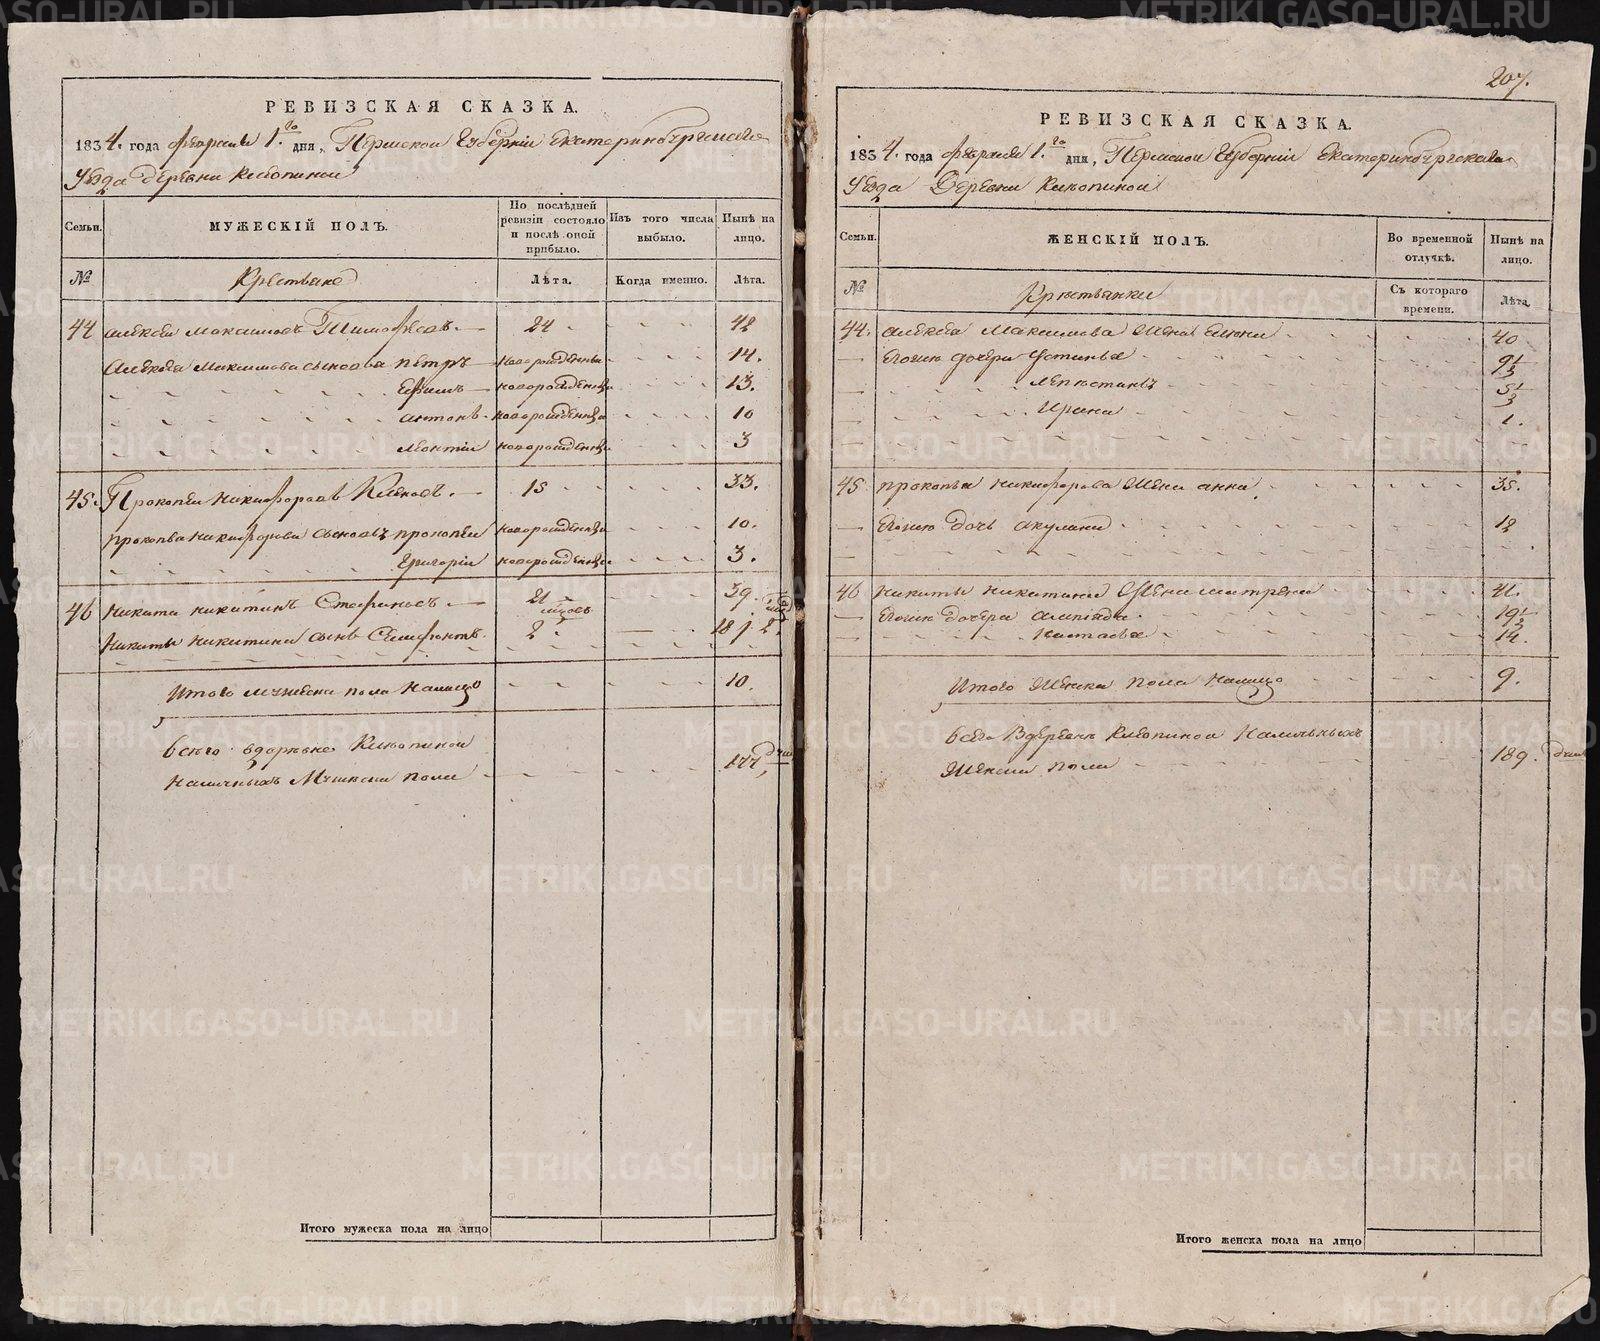 РЕВИЗСКАЯ СКАЗКА.
1834. года февраля 1.го дня, Пермской Губернiи Екатеринбургскаго
Уезда деревни Клюпиной
Семьи.
МУЖЕСКIЙ ПОЛЪ.
По послѣдней ревизiи состояло и послѣ оной прибыло.
Изъ того числа выбыло.
Нынѣ на лицо.
№
Крестьяне
Лѣта.
Когда именно.
Лѣта.
44 Алексей Максимовъ Тимофеевъ 24 42
Алексея Максимова сыновья Петръ новорожденны 14.
Ефимъ новорожденны 13.
Антонъ новорожденны 10
Леонтiй новорожденны 3
45. Прокопей Никифоровъ 15 33.
Прокопья Никифорова сыновья Прокопей новорожденны 10.
Григорiй новорожденны 3.
46 Никита Никитинъ 21 39.
Никиты Никитина сынъ 2. 18
Итого мужеска пола налицо 10.
Всего вдеревне Клюпиной
наличныхъ Мужеска пола 177
Итого мужеска пола на лицо
207.
РЕВИЗСКАЯ СКАЗКА.
1834. года февраля 1.го дня, Пермской Губернiи Екатеринбургскаго
Уезда Деревни Клюпиной
Семьи.
ЖЕНСКIЙ ПОЛЪ.
Во временной отлучкѣ.
Нынѣ на лицо.
№
Крестьянки
Съ котораго времени.
Лѣта.
44. Алексея Максимова жена 40
Егоже дочери Устинья 9½
5½
Ирина 1.
45 Прокопья Никифорова жена Анна 35.
Егоже дочь Акулина 12
46 Никиты Никитина жена Матрена 41.
Егоже дочери 19½
Настасья 14.
Итого Женска пола налицо 9.
Всего Вдеревне Клюпиной Наличныхъ
Женска пола 189.
Итого женска пола на лицо
METRIKI.GASO-URAL.RU